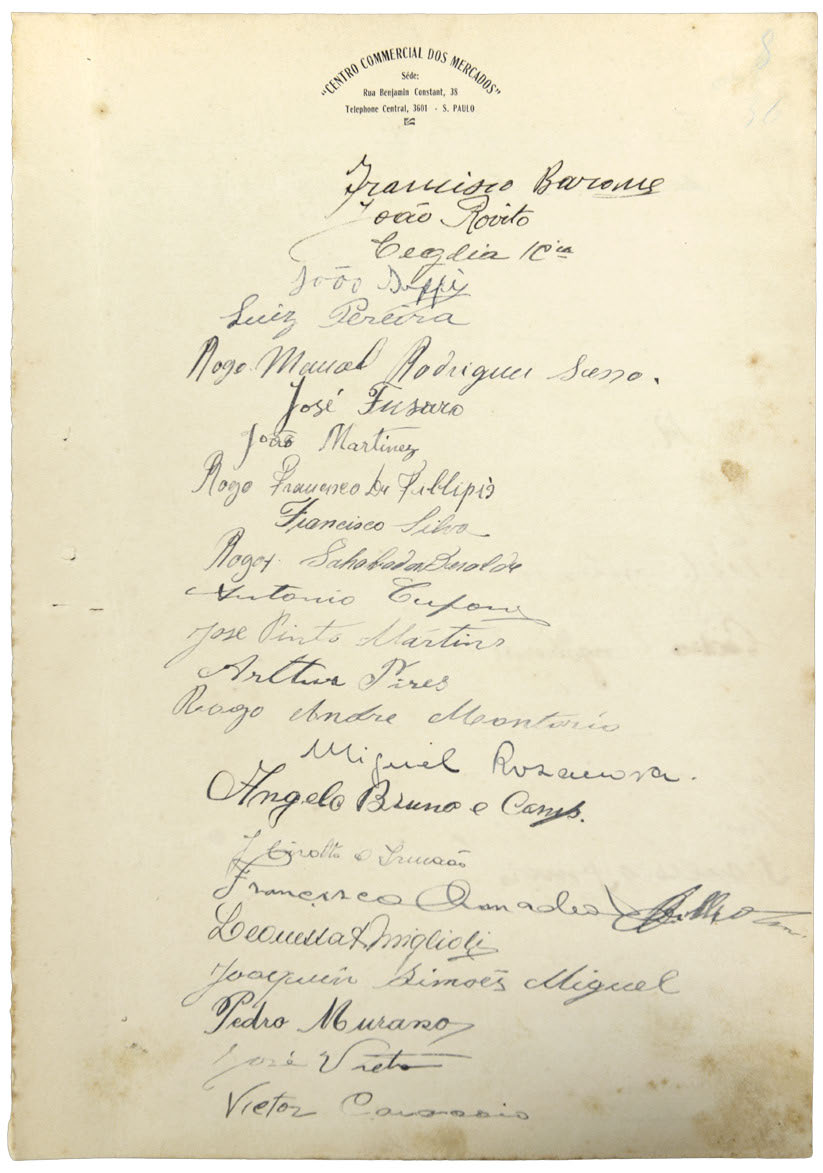 "CENTRO COMMERCIAL DOS MERCADOS"
Séde:
Rua Benjamin Constant, 38
Telephone Central, 3601 - S. PAULO
8
36
Francisco Barone
João Rovito
Ceglia & Cia
João
Luiz Pereira
Rogo Manoel Rodrigues
José Fusaro
João Martinez
Rogo Francisco De Fillipis
Francisco Silva
Rogo
Antonio Cupone
José Pinto Martins
Arthur Pires
Rogo Andre Montorio
Miguel Rosanova.
Angelo Bruno e Comp.
e Irmão
Francisco Amadeo
& Miglioli
Joaquin Simoẽs Miguel
Pedro Murano
José
Victor